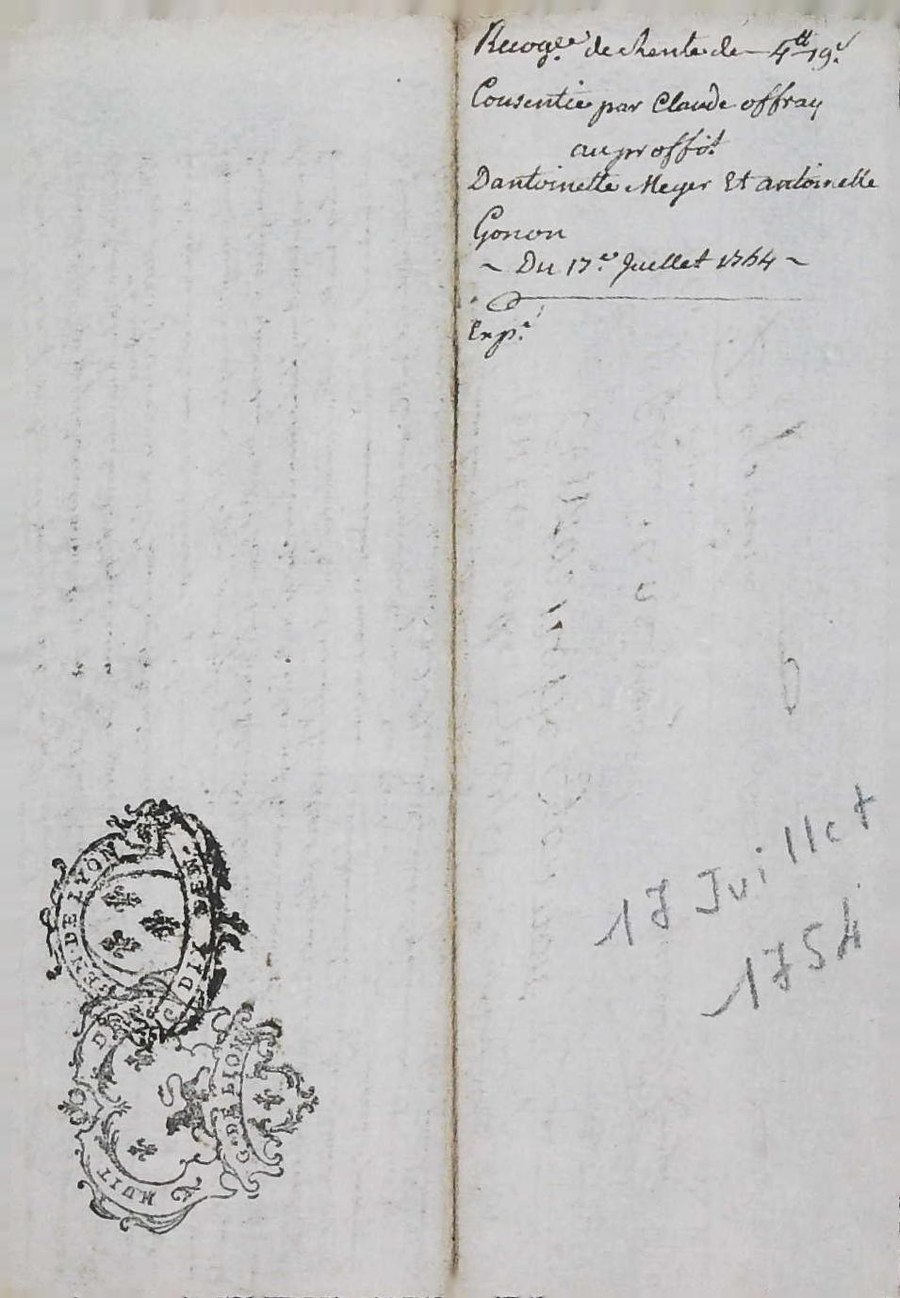 Recog.ce de Rente de 4tt 19s
Consentie par Claude offray
au proffit
Dantoinette Meyer Et antoinette
Gonon
~ Du 17.e Juillet 1754 ~
Exp.e
17 Juillet
1754
GEN·DE LYON DIX DEN.
HUIT DE
G·DE LION